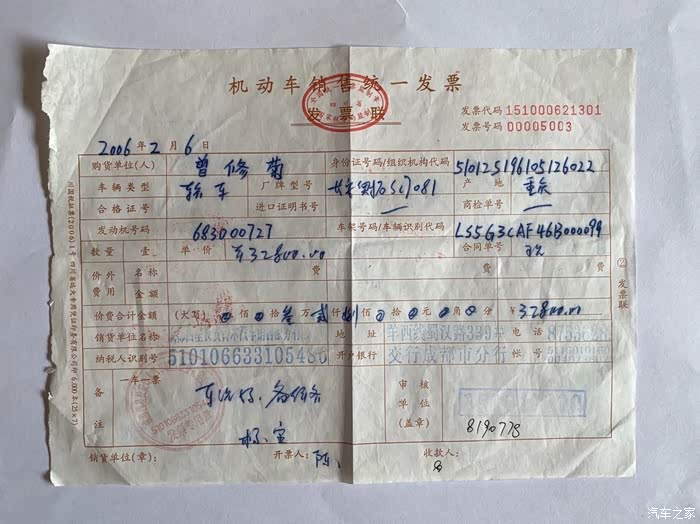 机动车销售统一发票
发票联
发票代码 151000621301
发票号码 00005003
2006年2月6日
购货单位(人) 曾修菊 身份证号码/组织机构代码 510125196105126022
车辆类型 轿车 厂牌型号 产地 重庆
合格证号 进口证明书号 — 商检单号 —
发动机号码 683D00727 车架号码/车辆识别代码 LS5G3CAF46B000099
数量 壹 单价 ¥32800.00 合同单号
价外费用 名称 费 费
金额
价费合计金额 (大写) 佰 拾 叁万 贰仟 捌佰 拾 元 角 分 ¥32800.00
销货单位名称 地址 羊西线蜀汉路339# 电话
纳税人识别号 510106633105486 开户银行 交行成都市分行 帐号
备注 一车一票 审核单位(盖章)
8190778
销货单位(章): 开票人: 陈 收款人:
②发票联
汽车之家